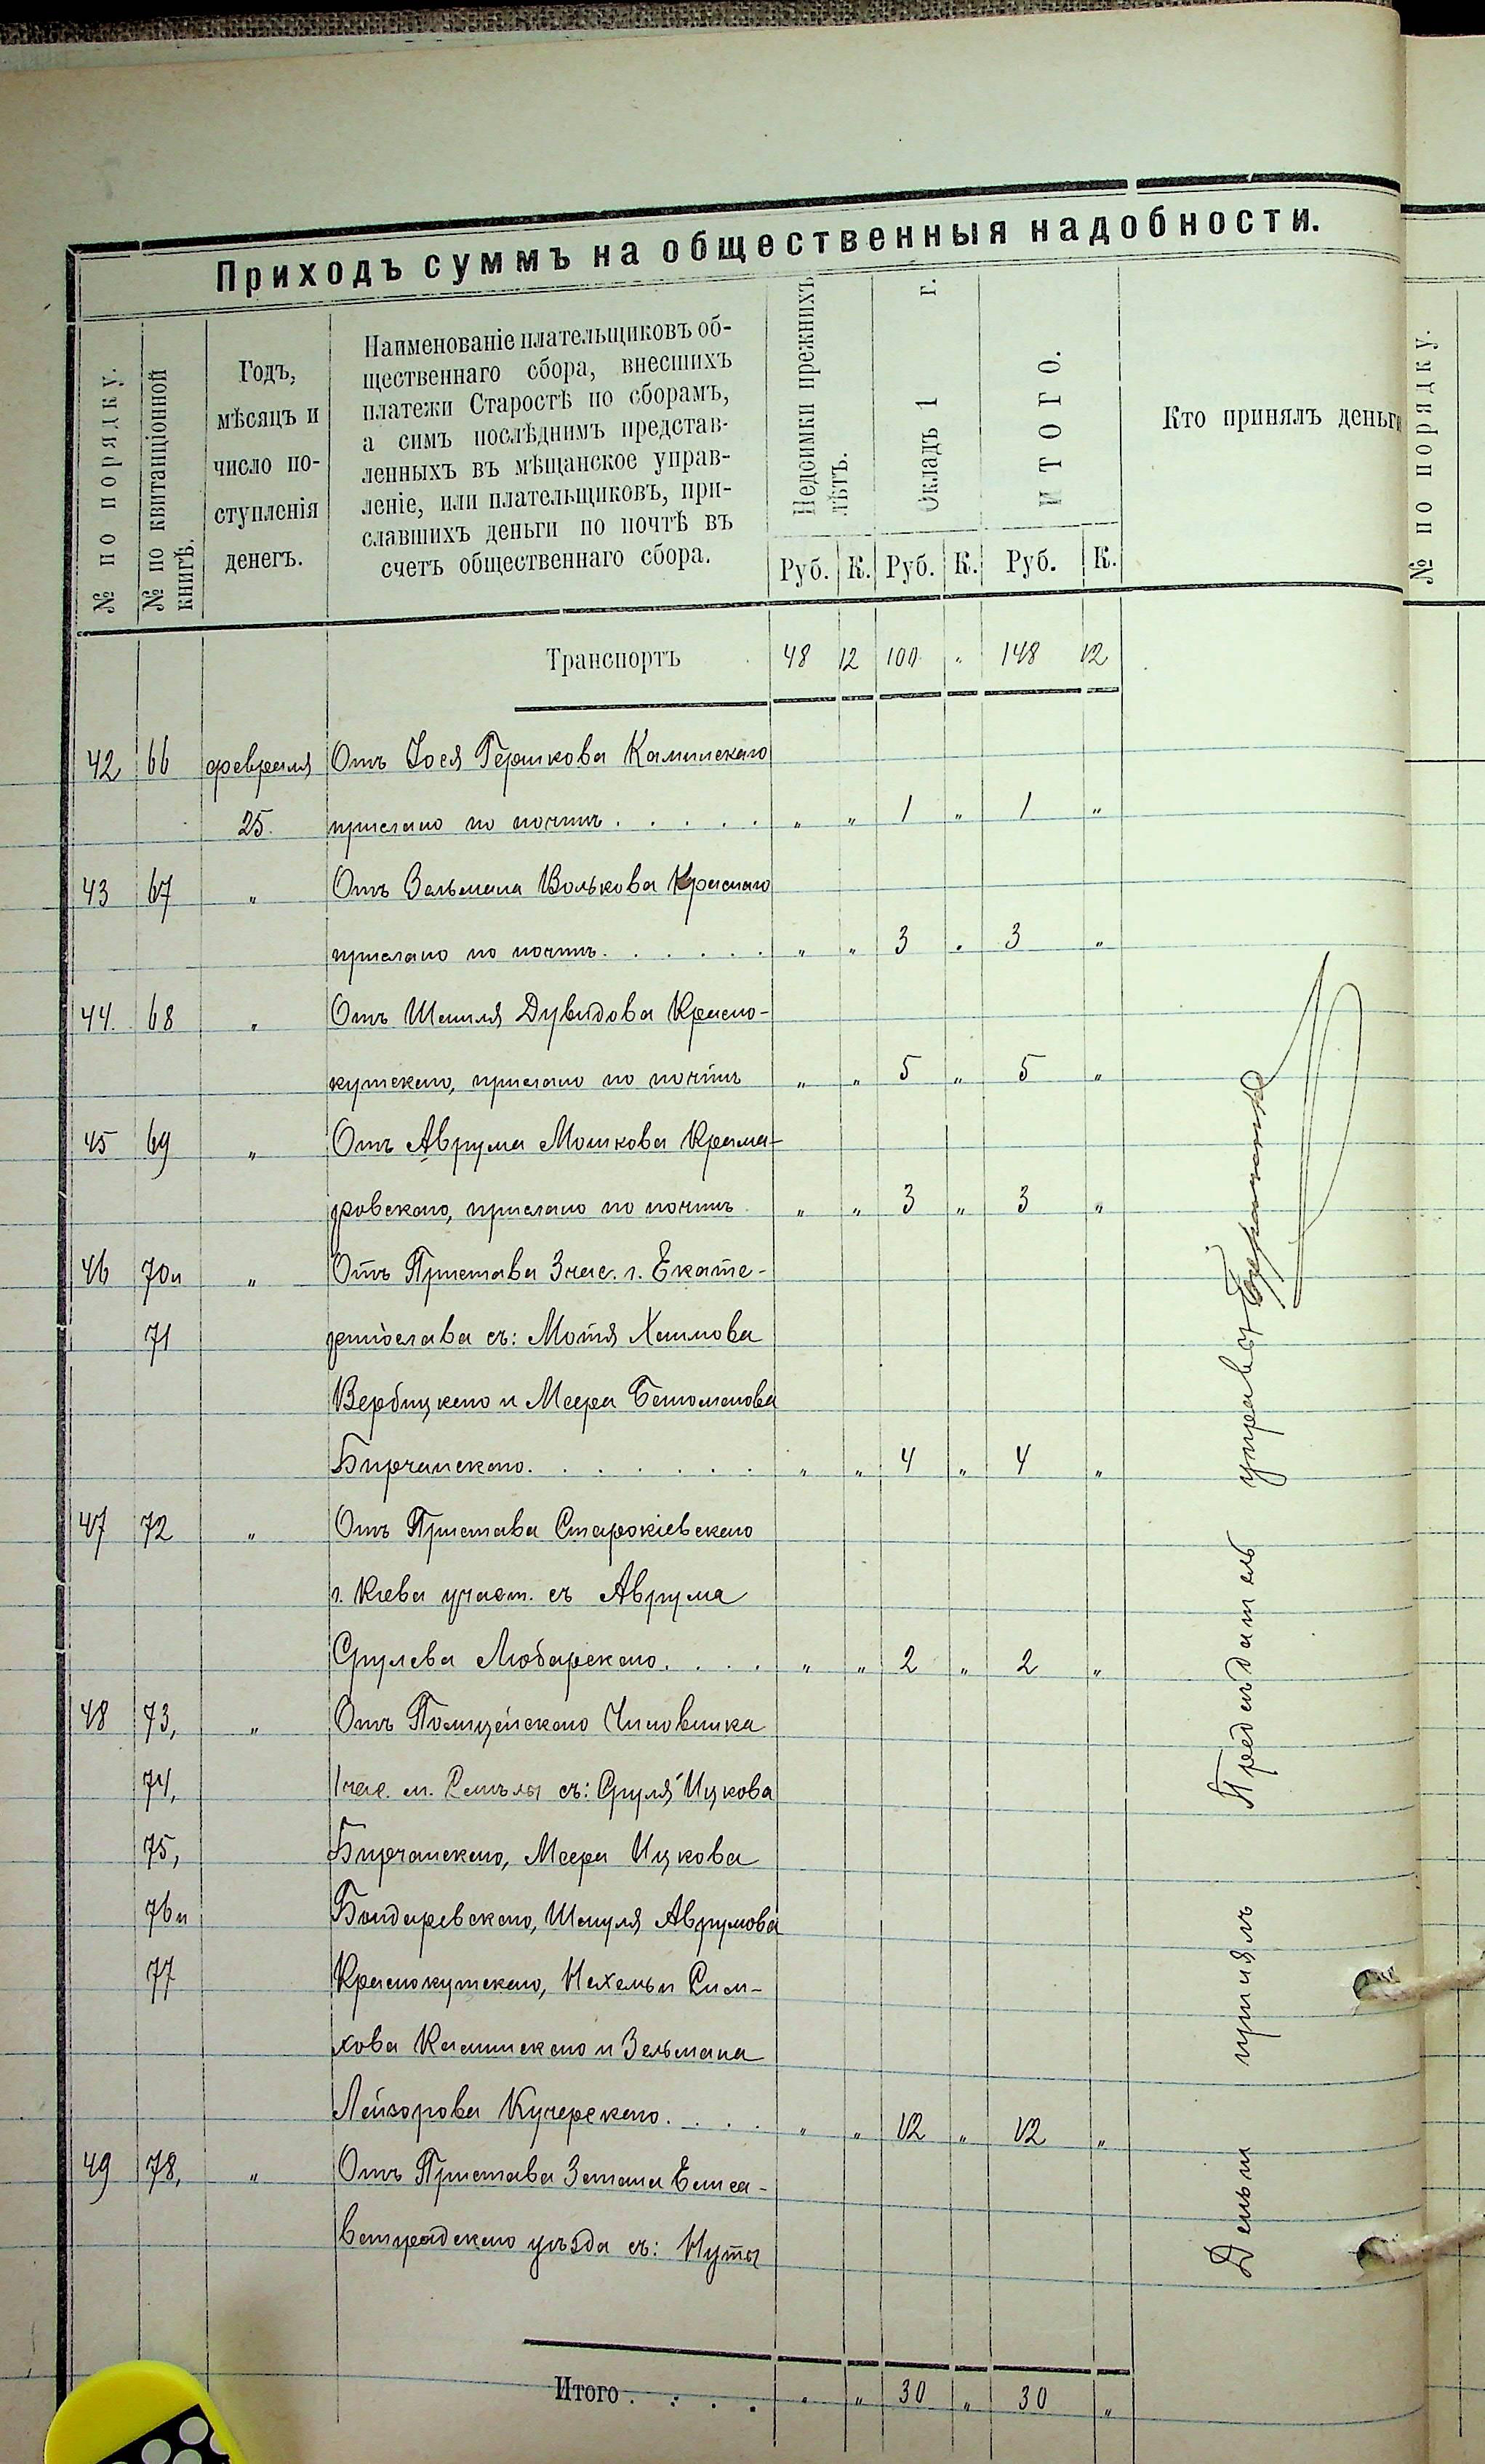 Приходъ суммъ на общественныя надобности.
№ по порядку.
№ по квитанціонной
книгѣ.
Годъ,
мѣсяцъ и
число по-
ступленія
денегъ.
Наименованіе плательщиковъ об-
щественнаго сбора, внесшихъ
платежи Старостѣ по сборамъ,
а симъ послѣднимъ представ-
ленныхъ въ мѣщанское управ-
леніе, или плательщиковъ, при-
славшихъ деньги по почтѣ въ
счетъ общественнаго сбора.
Недоимки прежнихъ
лѣтъ.
Окладъ 1 г.
ИТОГО.
Кто принялъ деньги
№ по порядку.
Руб. К. Руб. К. Руб. К.
Транспортъ 48 12 100 „ 148 12
42 66 февраля Отъ Іося Гершкова Каминскаго
25. прислано по почтѣ . . . . . „ „ 1 „ 1 „
43 67 „ Отъ Зельмана Волькова Краснаго
прислано по почтѣ . . . . . . „ „ 3 „ 3 „
44. 68 „ Отъ Шмиля Дувидова Красно-
кутскаго, прислано по почтѣ „ „ 5 „ 5 „
45 69 „ Отъ Аврума Мошкова Крама-
ровскаго, прислано по почтѣ „ „ 3 „ 3 „
46 70 и „ Отъ Пристава 3 час. г. Екате-
71 ринослава съ: Мотя Хаимова
Вербицкаго и Меера
Бирчанскаго . . . . . . . „ „ 4 „ 4 „
47 72 „ Отъ Пристава Старокіевскаго
г. Кіева участ. съ Аврума
Срулева Любарскаго . . . . „ „ 2 „ 2 „
48 73, „ Отъ Полицейскаго Чиновника
74, 1 час. м. Смѣлы съ: Сруля Ицкова
75, Бирчанскаго, Меера Ицкова
76 и Бондаревскаго, Шмуля Аврумова
77 Краснокутскаго, Нахемьи Сим-
хова Каминскаго и Зельмана
Лейзорова Кучерскаго . . . . „ „ 12 „ 12 „
49 78, „ Отъ Пристава 3 стана Елиса-
ветградскаго уѣзда съ: Нуты
Итого . . . . „ „ 30 „ 30 „
Деньги принялъ Предсѣдатель управы